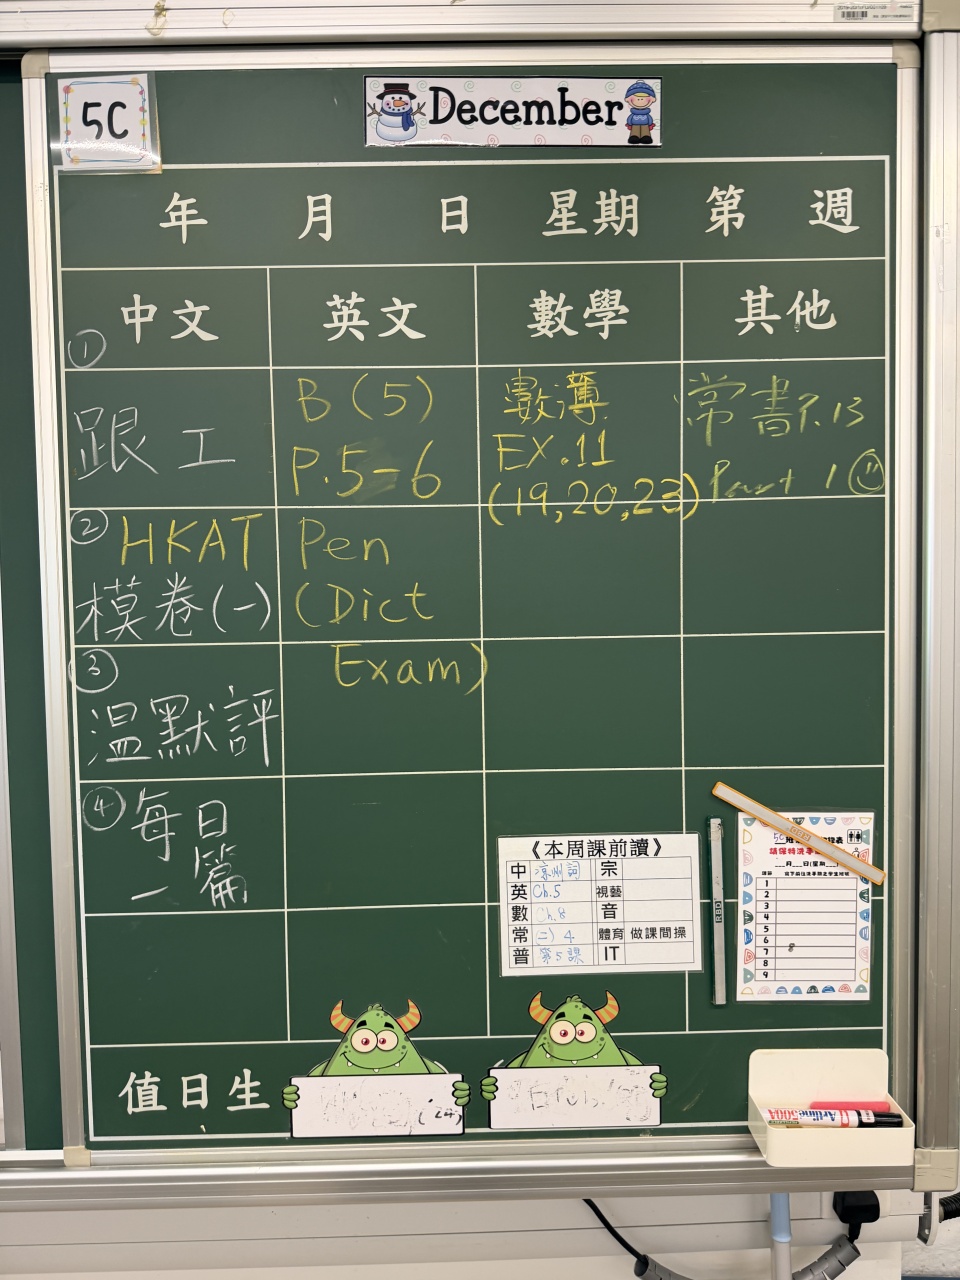 5C
December
年 月 日 星期 第 週
中文 英文 數學 其他
①
跟工
B(5)
P.5-6
數簿
EX.11
(19,20,23)
常書P.13
Part 1
②
HKAT
模卷(一)
Pen
(Dict
Exam)
③
温默評
④
每日
一篇
《本周課前讀》
中 涼州詞 宗
英 Ch.5 視藝
數 Ch.8 音
常 (二) 4 體育 做課間操
普 第5課 IT
5C
請保持洗手
月 日(星期
1
2
3
4
5
6
7
8
9
8
RBD
值日生
Artline
500A